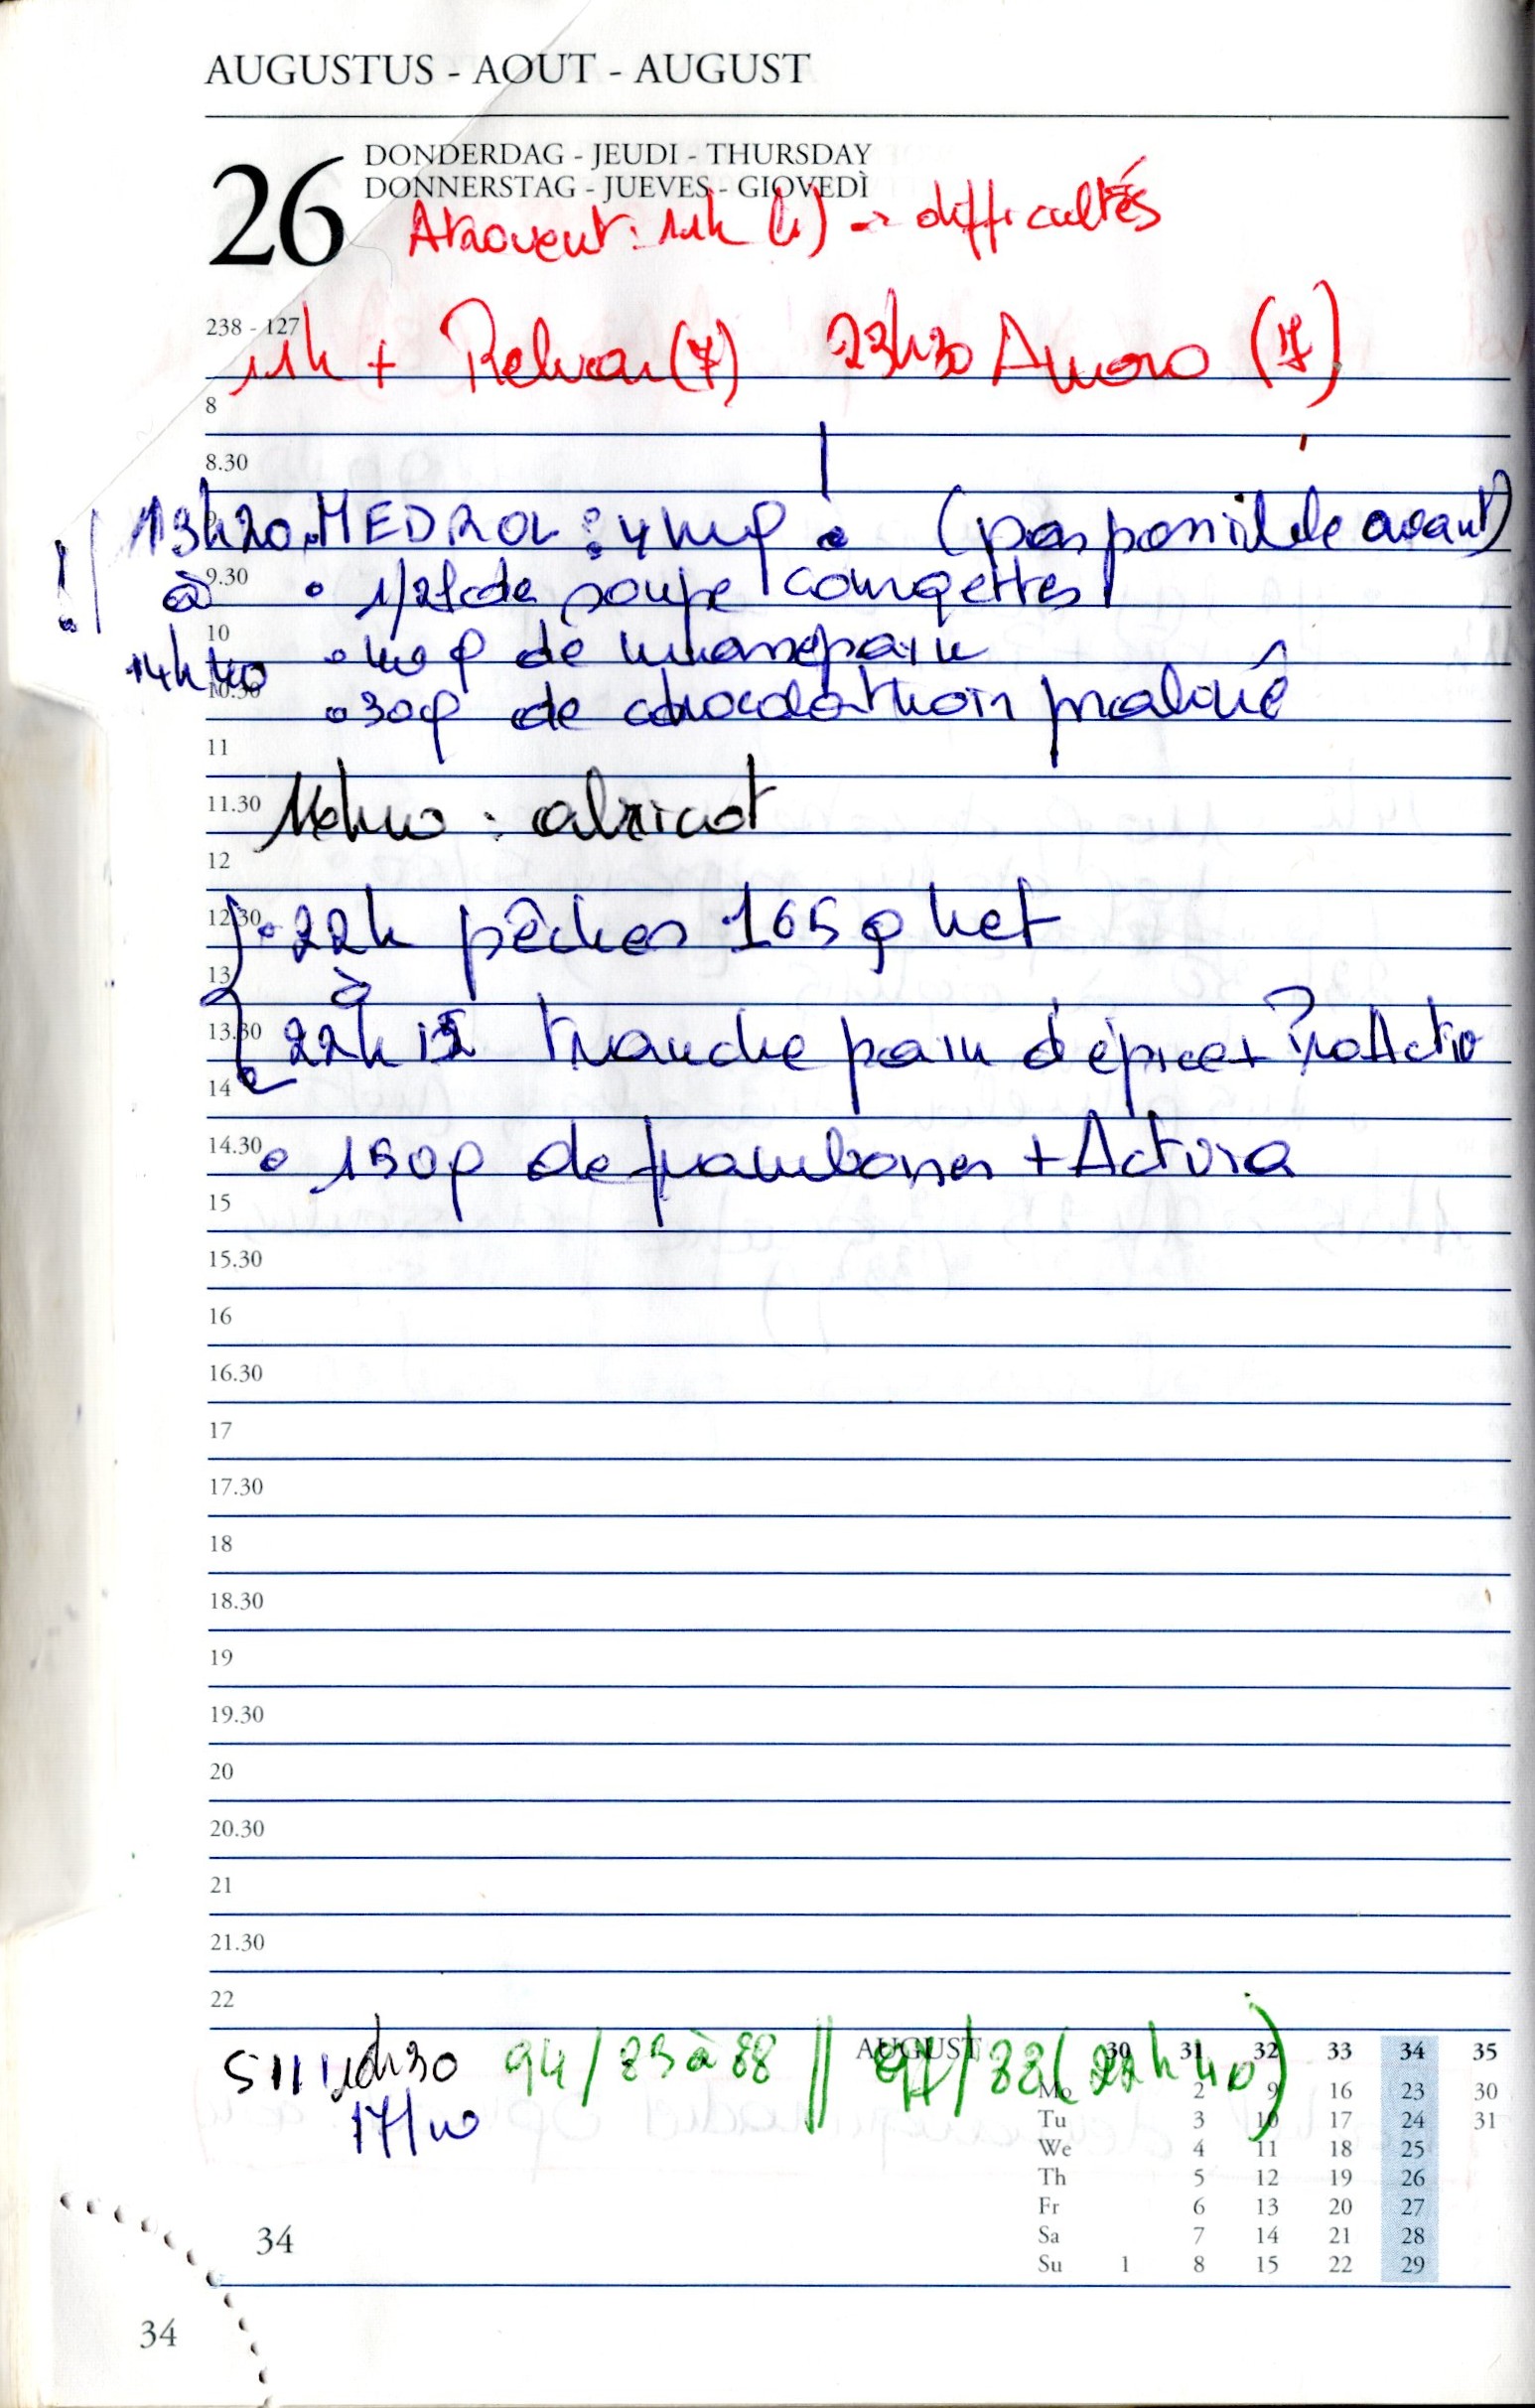 AUGUSTUS - AOUT - AUGUST
26
DONDERDAG - JEUDI - THURSDAY
DONNERSTAG - JUEVES - GIOVEDÌ
Atrovent : 11h → difficultés
238 - 127
11h + Relvar (7) 23h30 Anoro (7)
8
8.30
!! 13h20 MEDROL : 4mg (pas possible avant)
9
à
9.30
1/2 l de soupe courgettes
10
g de massepain
14h40
10.30
30g de chocolat noir praliné
11
11.30
16h40 : abricot
12
12.30
22h pêches 165g net
13
à
13.30
22h15 tranche pain d'épice + ProActiv
14
14.30
150g de framboises + Activia
15
15.30
16
16.30
17
17.30
18
18.30
19
19.30
20
20.30
21
21.30
22
94/85 à 88 // 88 (22h40)
AUGUST 30 31 32 33 34 35
Mo 2 9 16 23 30
Tu 3 10 17 24 31
We 4 11 18 25
Th 5 12 19 26
Fr 6 13 20 27
Sa 7 14 21 28
Su 1 8 15 22 29
34
34